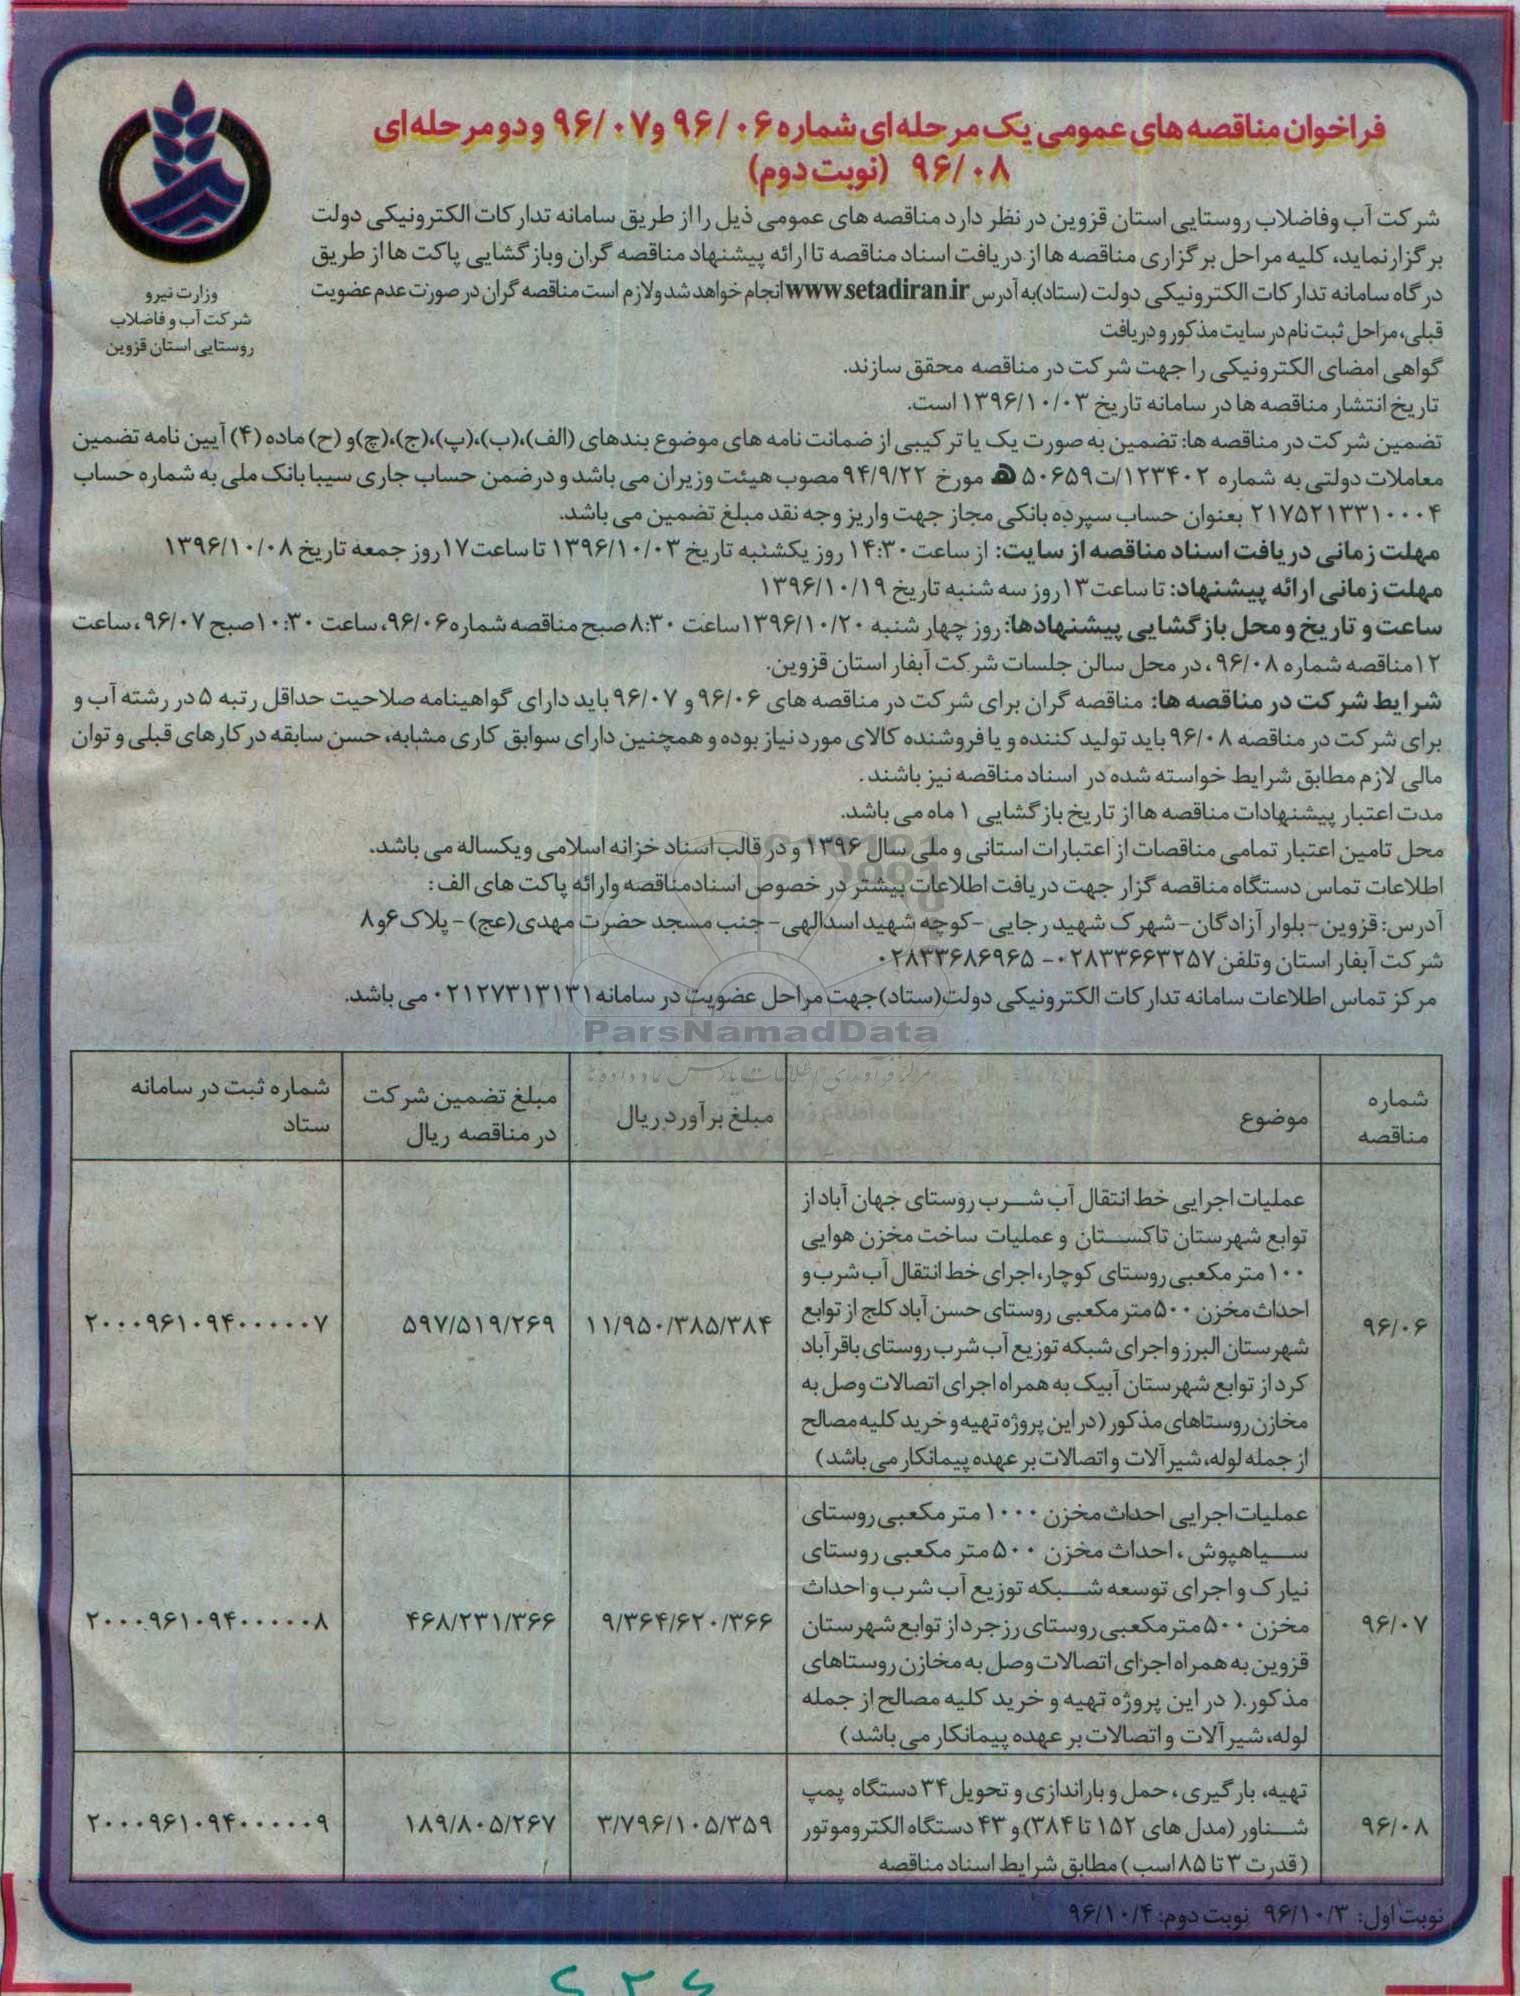 فراخوان مناقصه های عمومی یک مرحله ای شماره ۹۶/۰۶ و ۹۶/۰۷ و دو مرحله ای
۹۶/۰۸ (نوبت دوم)
وزارت نیرو
شرکت آب و فاضلاب
روستایی استان قزوین
شرکت آب وفاضلاب روستایی استان قزوین در نظر دارد مناقصه های عمومی ذیل را از طریق سامانه تدارکات الکترونیکی دولت
برگزارنماید، کلیه مراحل برگزاری مناقصه ها از دریافت اسناد مناقصه تا ارائه پیشنهاد مناقصه گران وبازگشایی پاکت ها از طریق
درگاه سامانه تدارکات الکترونیکی دولت (ستاد)به آدرس www.setadiran.ir انجام خواهد شد ولازم است مناقصه گران در صورت عدم عضویت
قبلی، مراحل ثبت نام در سایت مذکور و دریافت
گواهی امضای الکترونیکی را جهت شرکت در مناقصه محقق سازند.
تاریخ انتشار مناقصه ها در سامانه تاریخ ۱۳۹۶/۱۰/۰۳ است.
تضمین شرکت در مناقصه ها: تضمین به صورت یک یا ترکیبی از ضمانت نامه های موضوع بندهای (الف)،(ب)،(پ)،(ج)،(چ)و (ح) ماده (۴) آیین نامه تضمین
معاملات دولتی به شماره ۱۲۳۴۰۲/ت۵۰۶۵۹ هـ مورخ ۹۴/۹/۲۲ مصوب هیئت وزیران می باشد و درضمن حساب جاری سیبا بانک ملی به شماره حساب
۲۱۷۵۲۱۳۳۱۰۰۰۴ بعنوان حساب سپرده بانکی مجاز جهت واریز وجه نقد مبلغ تضمین می باشد.
مهلت زمانی دریافت اسناد مناقصه از سایت: از ساعت ۱۴:۳۰ روز یکشنبه تاریخ ۱۳۹۶/۱۰/۰۳ تا ساعت ۱۷ روز جمعه تاریخ ۱۳۹۶/۱۰/۰۸
مهلت زمانی ارائه پیشنهاد: تا ساعت ۱۳ روز سه شنبه تاریخ ۱۳۹۶/۱۰/۱۹
ساعت و تاریخ و محل بازگشایی پیشنهادها: روز چهارشنبه ۱۳۹۶/۱۰/۲۰ ساعت ۸:۳۰ صبح مناقصه شماره ۹۶/۰۶، ساعت ۱۰:۳۰ صبح ۹۶/۰۷، ساعت
۱۲ مناقصه شماره ۹۶/۰۸، در محل سالن جلسات شرکت آبفار استان قزوین.
شرایط شرکت در مناقصه ها: مناقصه گران برای شرکت در مناقصه های ۹۶/۰۶ و ۹۶/۰۷ باید دارای گواهینامه صلاحیت حداقل رتبه ۵ در رشته آب و
برای شرکت در مناقصه ۹۶/۰۸ باید تولید کننده و یا فروشنده کالای مورد نیاز بوده و همچنین دارای سوابق کاری مشابه، حسن سابقه در کارهای قبلی و توان
مالی لازم مطابق شرایط خواسته شده در اسناد مناقصه نیز باشند.
مدت اعتبار پیشنهادات مناقصه ها از تاریخ بازگشایی ۱ ماه می باشد.
محل تامین اعتبار تمامی مناقصات از اعتبارات استانی و ملی سال ۱۳۹۶ و در قالب اسناد خزانه اسلامی ویکساله می باشد.
اطلاعات تماس دستگاه مناقصه گزار جهت دریافت اطلاعات بیشتر در خصوص اسناد مناقصه وارائه پاکت های الف:
آدرس: قزوین- بلوار آزادگان- شهرک شهید رجایی -کوچه شهید اسدالهی- جنب مسجد حضرت مهدی(عج) - پلاک ۶ و ۸
شرکت آبفار استان وتلفن ۰۲۸۳۳۶۶۳۲۵۷ - ۰۲۸۳۳۶۸۶۹۶۵
مرکز تماس اطلاعات سامانه تدارکات الکترونیکی دولت(ستاد)جهت مراحل عضویت در سامانه ۰۲۱۲۷۳۱۳۱۳۱ می باشد.
ParsNamadData
شماره مناقصه | موضوع | مبلغ برآورد ریال | مبلغ تضمین شرکت در مناقصه ریال | شماره ثبت در سامانه ستاد
۹۶/۰۶
عملیات اجرایی خط انتقال آب شـــرب روستای جهان آباد از
توابع شهرستان تاکســـتان و عملیات ساخت مخزن هوایی
۱۰۰ متر مکعبی روستای کوچار،اجرای خط انتقال آب شرب و
احداث مخزن ۵۰۰ متر مکعبی روستای حسن آباد کلج از توابع
شهرستان البرز و اجرای شبکه توزیع آب شرب روستای باقرآباد
کرد از توابع شهرستان آبیک به همراه اجرای اتصالات وصل به
مخازن روستاهای مذکور (در این پروژه تهیه و خرید کلیه مصالح
از جمله لوله، شیرآلات واتصالات بر عهده پیمانکار می باشد)
۱۱/۹۵۰/۳۸۵/۳۸۴
۵۹۷/۵۱۹/۲۶۹
۲۰۰۰۹۶۱۰۹۴۰۰۰۰۰۷
۹۶/۰۷
عملیات اجرایی احداث مخزن ۱۰۰۰ متر مکعبی روستای
ســـیاهپوش ، احداث مخزن ۵۰۰ متر مکعبی روستای
نیارک و اجرای توسعه شـــبکه توزیع آب شرب و احداث
مخزن ۵۰۰ مترمکعبی روستای رزجرد از توابع شهرستان
قزوین به همراه اجرای اتصالات وصل به مخازن روستاهای
مذکور.( در این پروژه تهیه و خرید کلیه مصالح از جمله
لوله، شیرآلات واتصالات بر عهده پیمانکار می باشد)
۹/۳۶۴/۶۲۰/۳۶۶
۴۶۸/۲۳۱/۳۶۶
۲۰۰۰۹۶۱۰۹۴۰۰۰۰۰۸
۹۶/۰۸
تهیه، بارگیری ، حمل و باراندازی و تحویل ۳۴ دستگاه پمپ
شـــناور (مدل های ۱۵۲ تا ۳۸۴) و ۴۳ دستگاه الکتروموتور
(قدرت ۳ تا ۸۵ اسب) مطابق شرایط اسناد مناقصه
۳/۷۹۶/۱۰۵/۳۵۹
۱۸۹/۸۰۵/۲۶۷
۲۰۰۰۹۶۱۰۹۴۰۰۰۰۰۹
نوبت اول: ۹۶/۱۰/۳ نوبت دوم: ۹۶/۱۰/۴